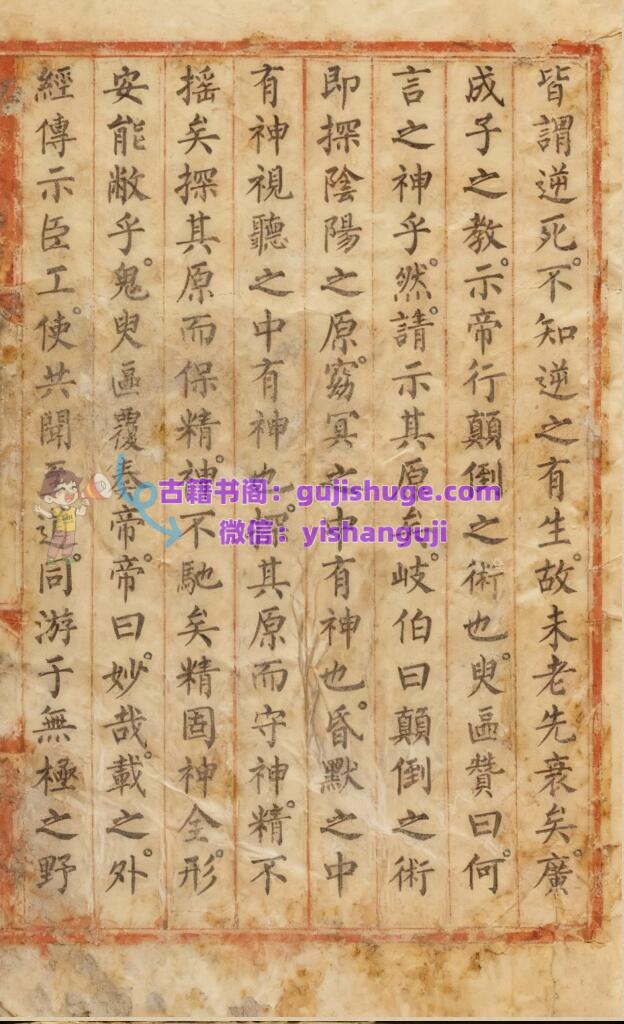 皆謂逆死。不知逆之有生。故未老先衰矣。廣
成子之教。示帝行顛倒之術也。臾區贊曰。何
言之神乎。然。請示其原矣。岐伯曰顛倒之術
即探陰陽之原。窈冥之中有神也。昏默之中
有神視聽之中有神也。探其原而守神。精不
搖矣探其原而保精。神不馳矣精固神全。形。
安能敝乎。鬼臾區覆奏帝。帝曰。妙哉。載之外。
經傳示臣工。使共聞道。同游于無極之野
古籍书阁：gujishuge.com
微信：yishanguji